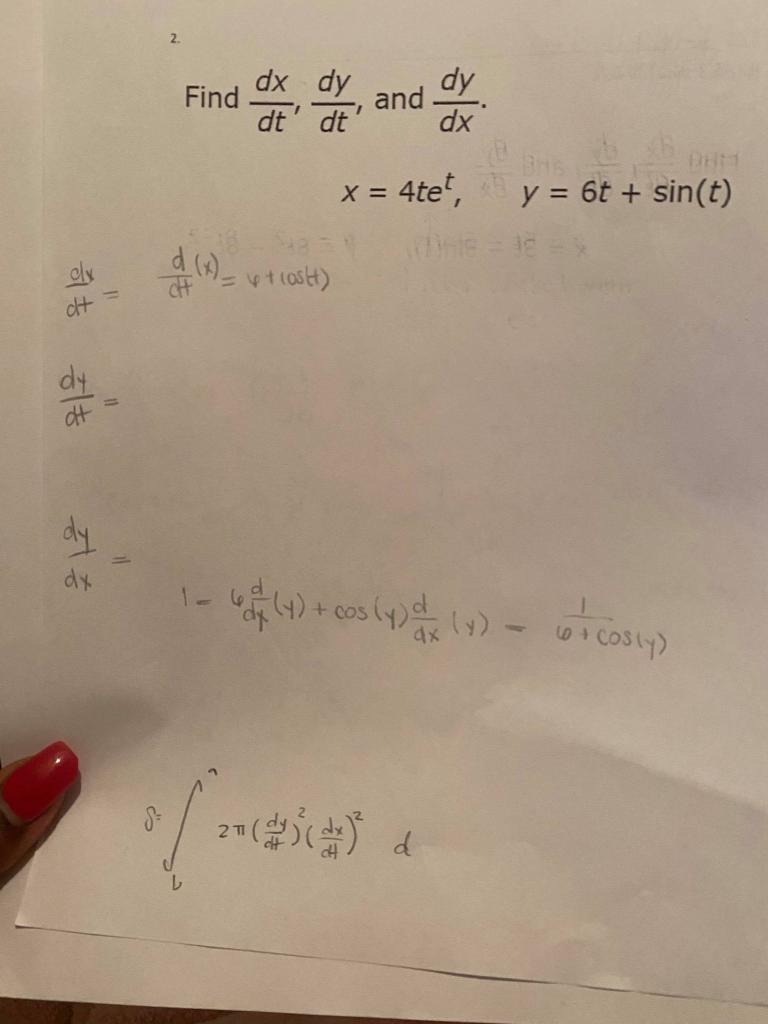 2.
Find dx/dt, dy/dt, and dy/dx.
x = 4te^t, y = 6t + sin(t)
dx/dt = d/dt (x) = 6 + cos(t)
dy/dt =
dy/dx =
1 - 6 d/dx (y) + cos(y) d/dx (y) - 1/(6 + cos(y))
2π (dy/dt)^2 (dx/dt)^2 d